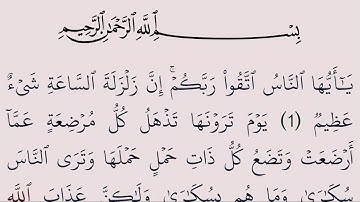 بِسْمِ ٱللَّهِ ٱلرَّحْمَٰنِ ٱلرَّحِيمِ
يَٰٓأَيُّهَا ٱلنَّاسُ ٱتَّقُوا۟ رَبَّكُمْ ۚ إِنَّ زَلْزَلَةَ ٱلسَّاعَةِ شَىْءٌ
عَظِيمٌ (1) يَوْمَ تَرَوْنَهَا تَذْهَلُ كُلُّ مُرْضِعَةٍ عَمَّآ
أَرْضَعَتْ وَتَضَعُ كُلُّ ذَاتِ حَمْلٍ حَمْلَهَا وَتَرَى ٱلنَّاسَ
سُكَٰرَىٰ وَمَا هُم بِسُكَٰرَىٰ وَلَٰكِنَّ عَذَابَ ٱللَّهِ